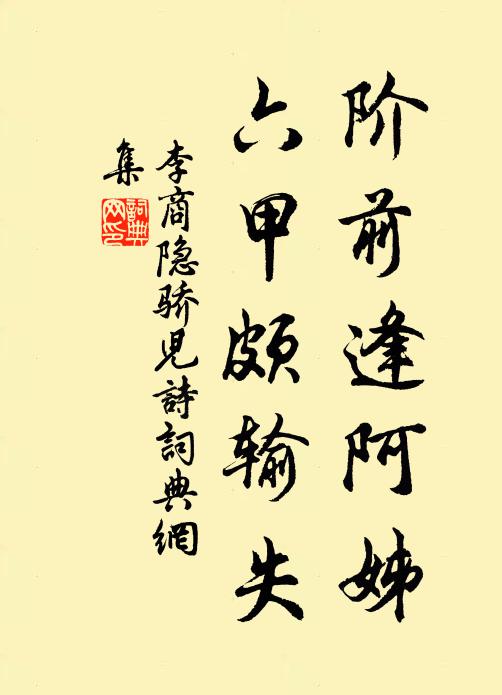 阶前逢阿姊
六甲颇输失
李商隐骄儿詩詞典網
集
詞典
网印